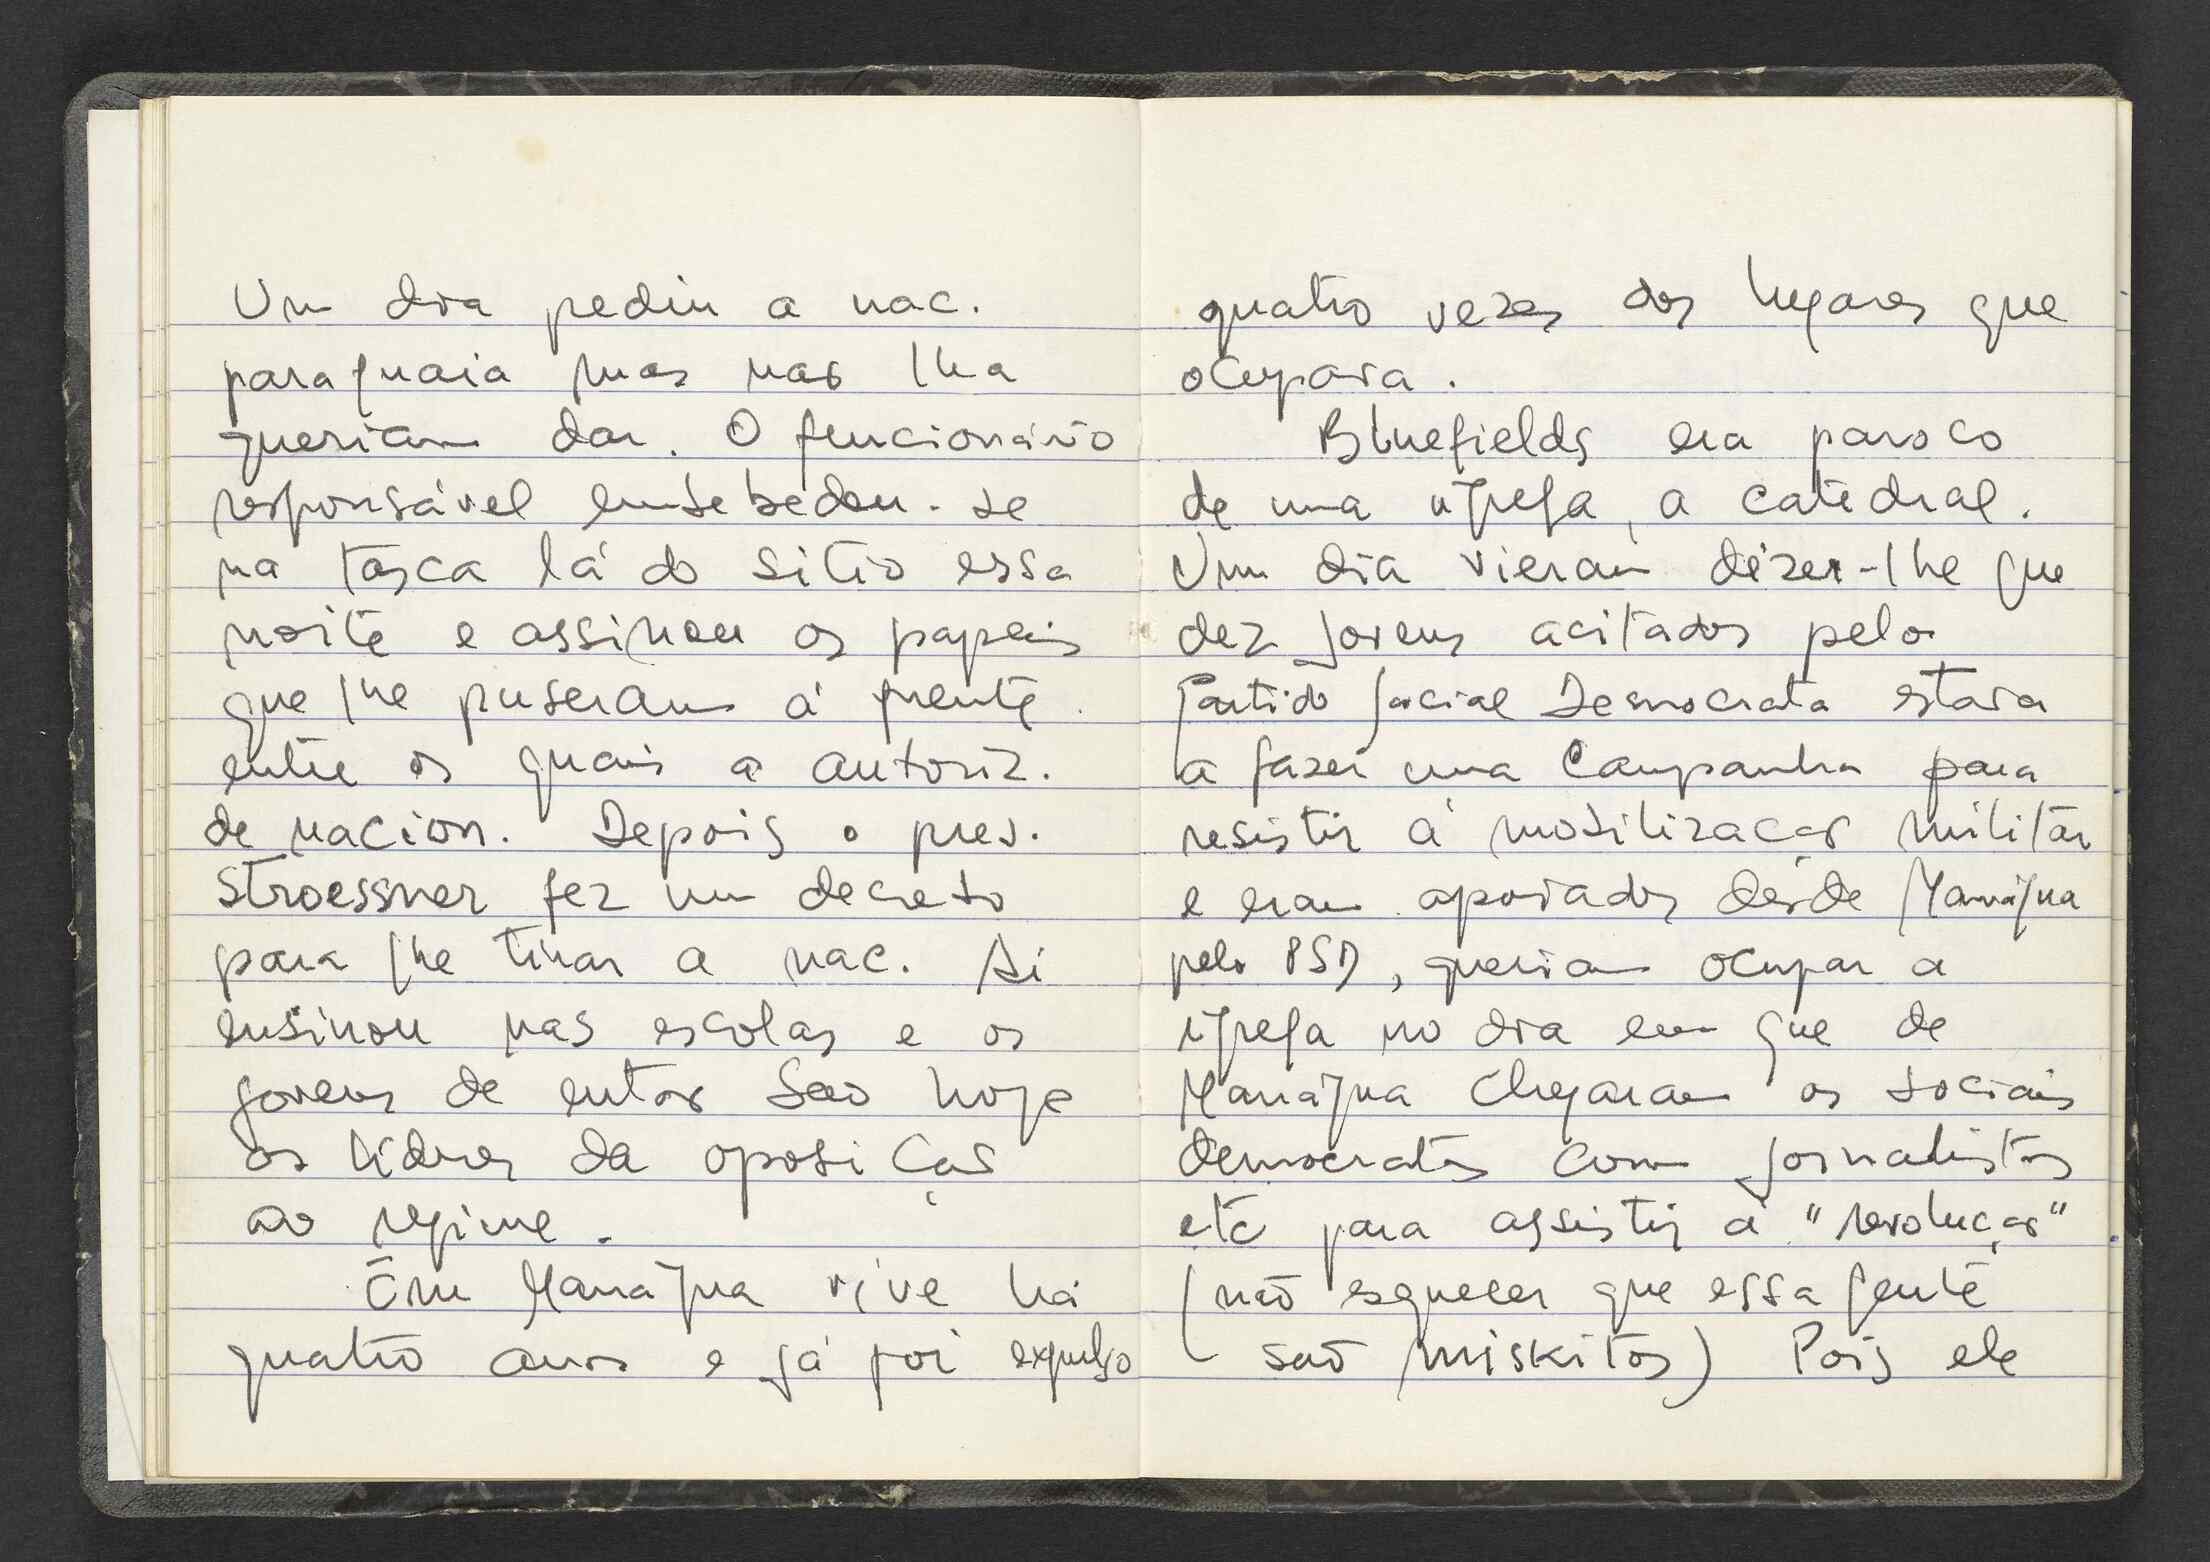 Um dia pediu a nac.
paraguaia mas não lha
queriam dar. O funcionário
responsável embebedou-se
na tasca lá do sitio essa
noite e assinou os papeis
que lhe puseram à frente
entre os quais a autoriz.
de nacion. Depois o pres.
Stroessner fez um decreto
para lhe tirar a nac. Ai
ensinou nas escolas e os
jovens de então são hoje
os lideres da oposição
ao regime.
Em Manágua vive há
quatro anos e já foi expulso
quatro vezes dos lugares que
ocupara.
Bluefields era paroco
de uma igreja, a catedral.
Um dia vieram dizer-lhe que
dez jovens acitados pelo
Partido Social Democrata estava
a fazer uma campanha para
resistir à mobilização militar
e eram apoiados desde Manágua
pelo PSD, queriam ocupar a
igreja no dia em que de
Manágua chegaram os sociais
democratas com jornalistas
etc para assistir à "revolução"
(não esquecer que essa gente
são miskitos) Pois ele